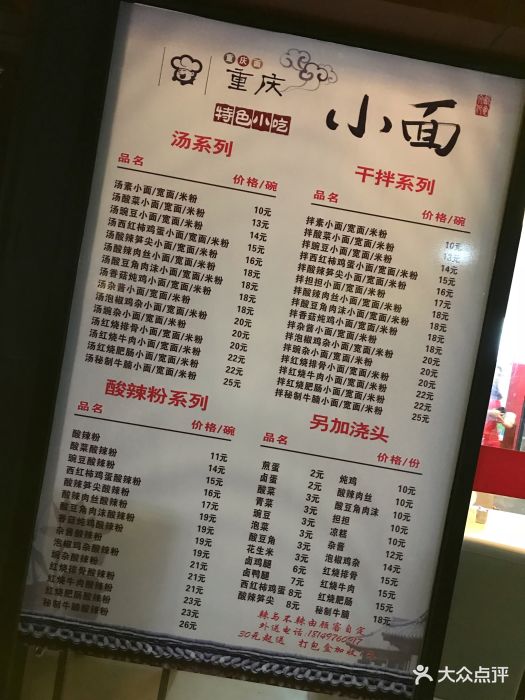 重庆面
重庆
小面
特色小吃
汤系列
品名 价格/碗
汤素小面/宽面/米粉 10元
汤酸菜小面/宽面/米粉 13元
汤豌豆小面/宽面/米粉 14元
汤西红柿鸡蛋小面/宽面/米粉 15元
汤酸辣笋尖小面/宽面/米粉 16元
汤酸辣肉丝小面/宽面/米粉 18元
汤酸豆角肉沫小面/宽面/米粉 18元
汤香菇炖鸡小面/宽面/米粉 18元
汤杂酱小面/宽面/米粉 18元
汤泡椒鸡杂小面/宽面/米粉 20元
汤豌杂小面/宽面/米粉 20元
汤红烧排骨小面/宽面/米粉 20元
汤红烧牛肉小面/宽面/米粉 22元
汤红烧肥肠小面/宽面/米粉 22元
汤秘制牛腩小面/宽面/米粉 25元
干拌系列
品名 价格/碗
拌素小面/宽面/米粉 10元
拌酸菜小面/宽面/米粉 13元
拌豌豆小面/宽面/米粉 14元
拌西红柿鸡蛋小面/宽面/米粉 15元
拌酸辣笋尖小面/宽面/米粉 16元
拌担担小面/宽面/米粉 17元
拌酸辣肉丝小面/宽面/米粉 18元
拌酸豆角肉沫小面/宽面/米粉 18元
拌香菇炖鸡小面/宽面/米粉 18元
拌杂酱小面/宽面/米粉 18元
拌泡椒鸡杂小面/宽面/米粉 20元
拌豌杂小面/宽面/米粉 20元
拌红烧排骨小面/宽面/米粉 20元
拌红烧牛肉小面/宽面/米粉 22元
拌红烧肥肠小面/宽面/米粉 22元
拌秘制牛腩小面/宽面/米粉 25元
酸辣粉系列
品名 价格/碗
酸辣粉 11元
酸菜酸辣粉 14元
豌豆酸辣粉 15元
西红柿鸡蛋酸辣粉 16元
酸辣笋尖酸辣粉 17元
酸辣肉丝酸辣粉 19元
酸豆角肉沫酸辣粉 19元
香菇炖鸡酸辣粉 19元
杂酱酸辣粉 19元
泡椒鸡杂酸辣粉 21元
豌杂酸辣粉 21元
红烧排骨酸辣粉 21元
红烧牛肉酸辣粉 23元
红烧肥肠酸辣粉 23元
秘制牛腩酸辣粉 26元
另加浇头
品名 价格/份
煎蛋 2元 炖鸡 10元
卤蛋 2元 酸辣肉丝 10元
酸菜 3元 酸豆角肉沫 10元
青菜 3元 担担 10元
豌豆 3元 凉糕 10元
泡菜 3元 杂酱 12元
酸豆角 3元 泡椒鸡杂 10元
花生米 3元 红烧排骨 10元
卤鸡腿 6元 红烧牛肉 10元
卤鸭腿 7元 红烧肥肠 10元
西红柿鸡蛋 8元 秘制牛腩
酸辣笋尖 8元
辣与不辣由顾客自定
外送电话:18149760517
30元起送 打包盒加收
大众点评